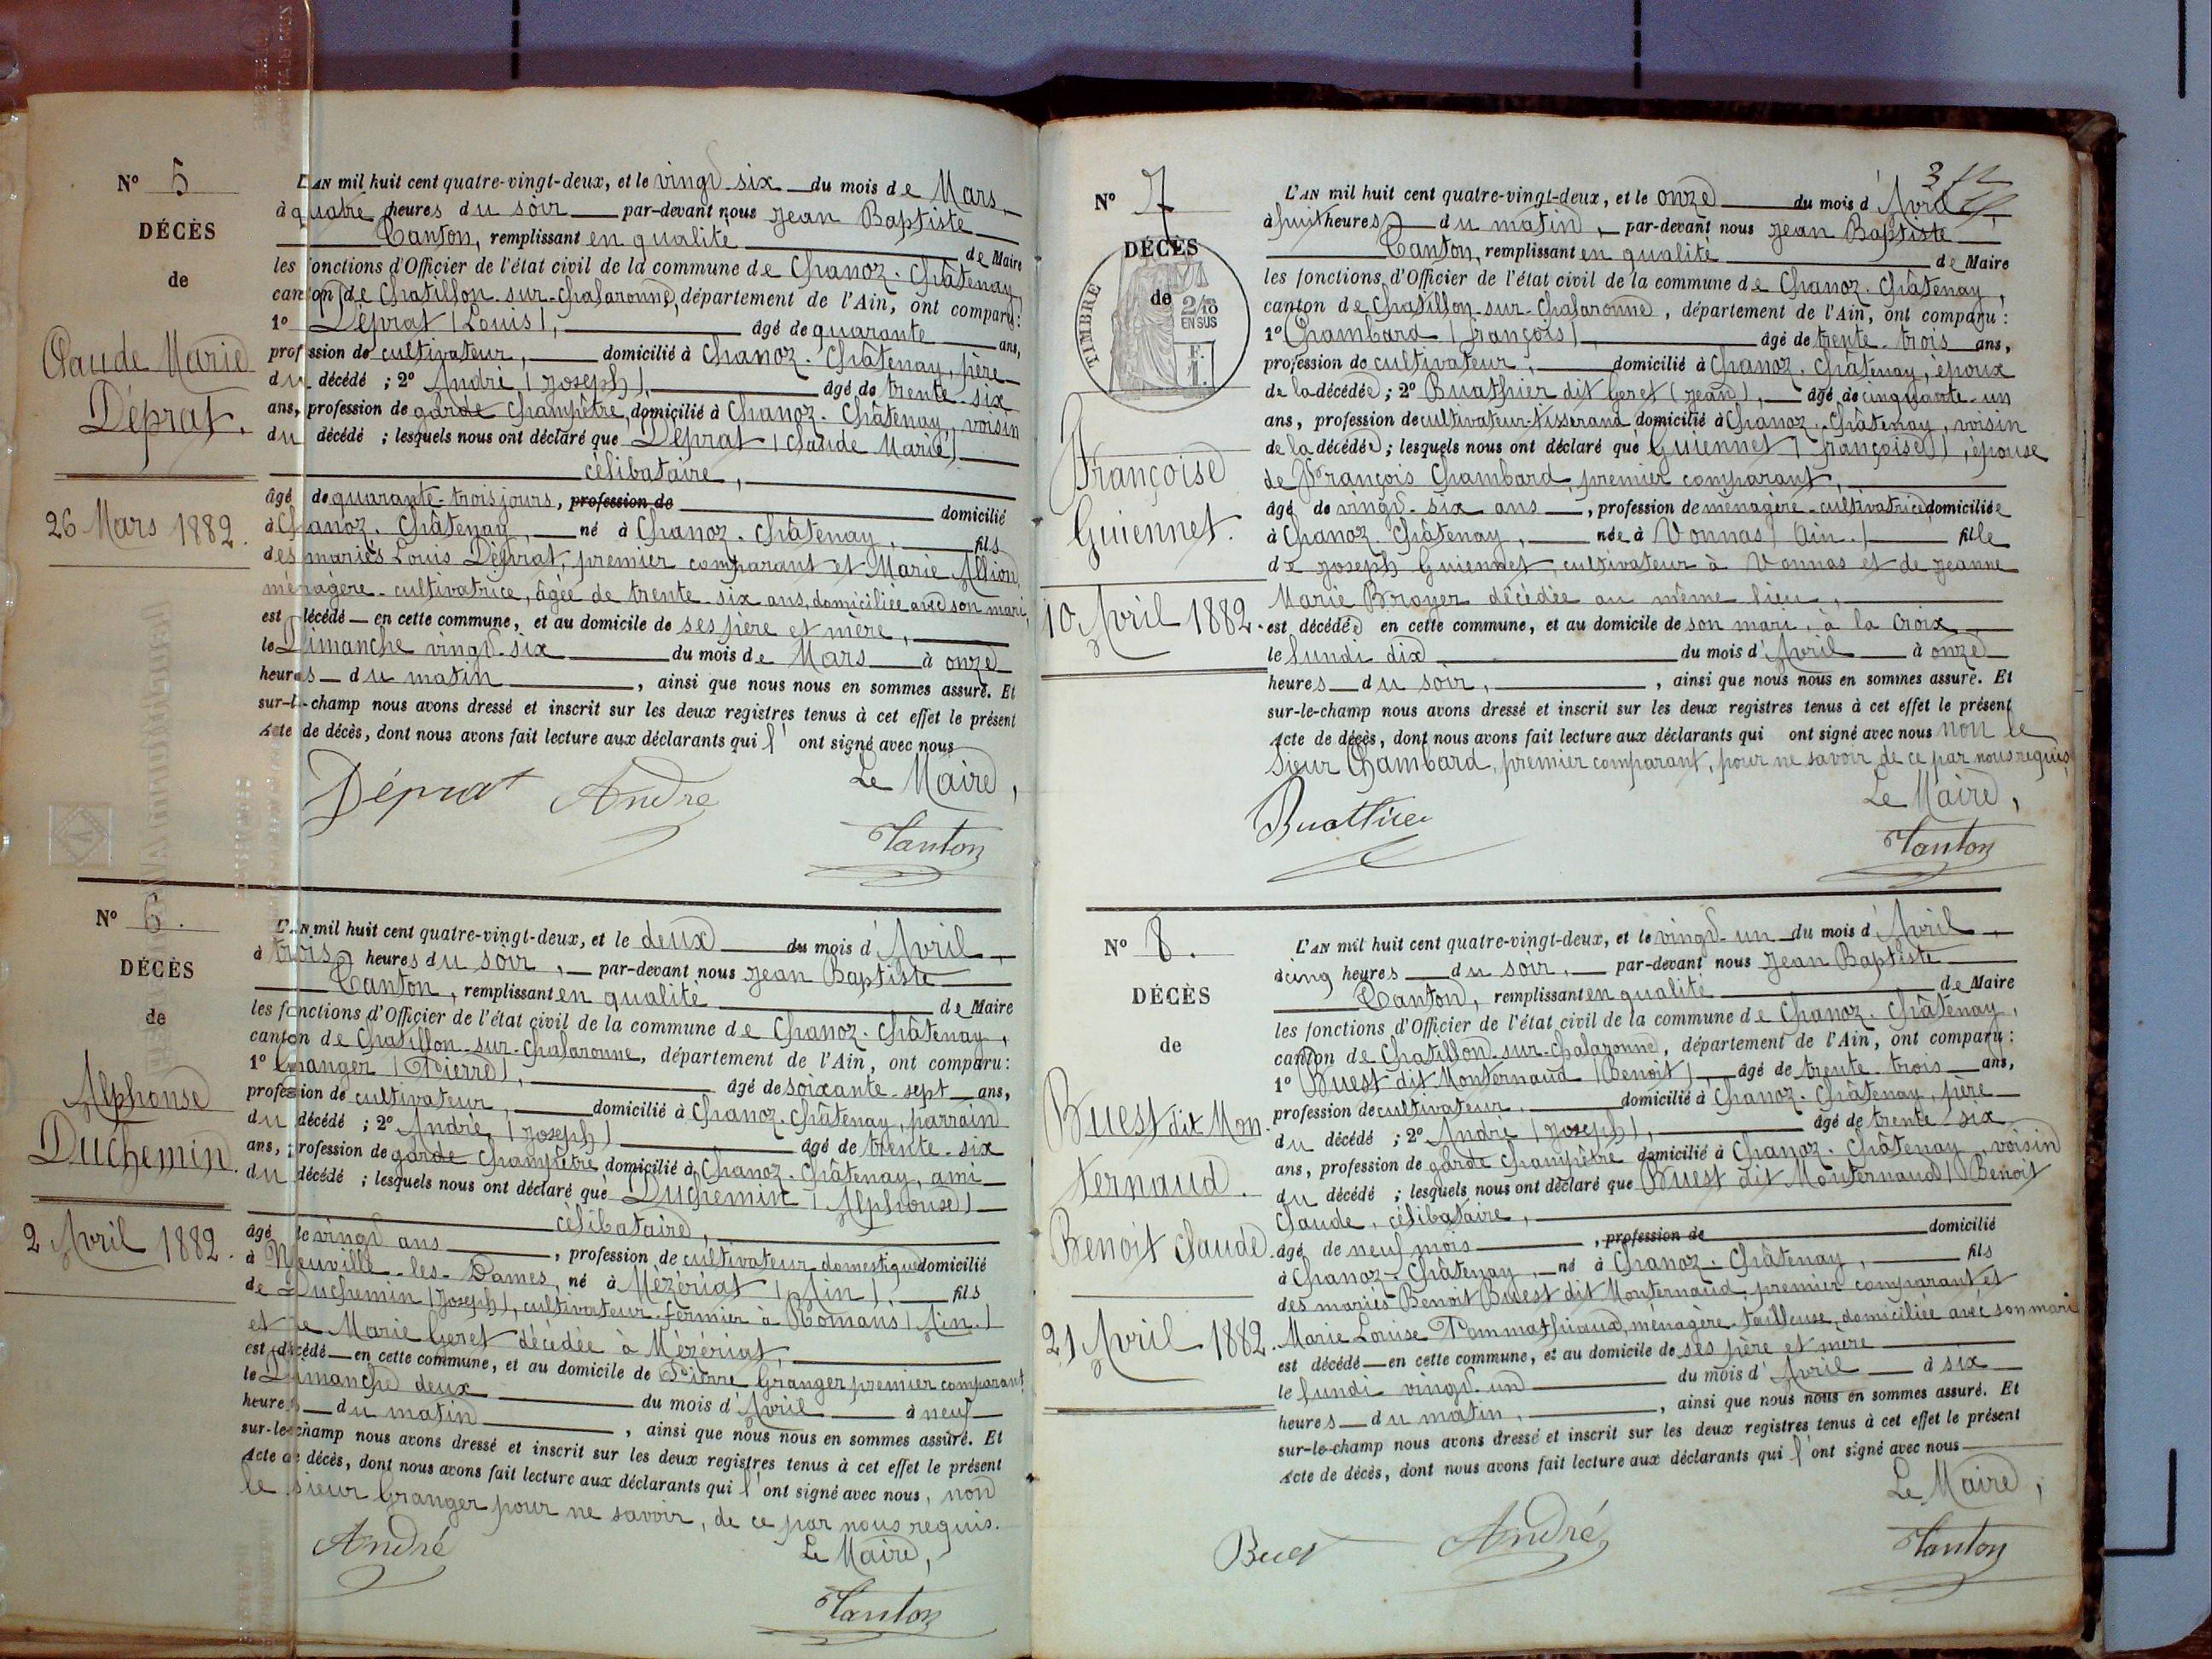 N° 5
DÉCÈS
de
Claude Marie
Déprat.
26 Mars 1882.
L'AN mil huit cent quatre-vingt-deux, et le vingt-six du mois de Mars
à quatre heures du soir par-devant nous Jean Baptiste
Tanton, remplissant en qualité de Maire
les fonctions d'Officier de l'état civil de la commune de Chanoz-Châtenay,
canton de Chatillon-sur-Chalaronne, département de l'Ain, ont comparu:
1° Déprat (Louis), âgé de quarante ans,
profession de cultivateur, domicilié à Chanoz-Châtenay, père
du décédé ; 2° André (Joseph), âgé de trente-six
ans, profession de garde champêtre, domicilié à Chanoz-Châtenay, voisin
du décédé ; lesquels nous ont déclaré que Déprat (Claude Marie)
célibataire,
âgé de quarante-trois jours, profession de domicilié
à Chanoz-Châtenay, né à Chanoz-Châtenay, fils
des mariés Louis Déprat, premier comparant et Marie Allion,
ménagère-cultivatrice, âgée de trente-six ans, domiciliée avec son mari,
est décédé en cette commune, et au domicile de ses père et mère,
le Dimanche vingt-six du mois de Mars à onze
heures du matin, ainsi que nous nous en sommes assuré. Et
sur-le-champ nous avons dressé et inscrit sur les deux registres tenus à cet effet le présent
Acte de décès, dont nous avons fait lecture aux déclarants qui l'ont signé avec nous
Le Maire,
Déprat André
Tanton
N° 6.
DÉCÈS
de
Alphonse
Duchemin.
2 Avril 1882.
L'AN mil huit cent quatre-vingt-deux, et le deux du mois d'Avril
à trois heures du soir, par-devant nous Jean Baptiste
Tanton, remplissant en qualité de Maire
les fonctions d'Officier de l'état civil de la commune de Chanoz-Châtenay,
canton de Chatillon-sur-Chalaronne, département de l'Ain, ont comparu:
1° Granger (Pierre), âgé de soixante-sept ans,
profession de cultivateur, domicilié à Chanoz-Châtenay, parrain
du décédé ; 2° André (Joseph) âgé de trente-six
ans, profession de garde champêtre domicilié à Chanoz-Châtenay, ami
du décédé ; lesquels nous ont déclaré que Duchemin (Alphonse)
célibataire,
âgé de vingt ans, profession de cultivateur domestique domicilié
à Neuville-les-Dames, né à Mézériat (Ain), fils
de Duchemin (Joseph), cultivateur-fermier à Romans (Ain)
et de Marie Geret décédée à Mézériat,
est décédé en cette commune, et au domicile de Pierre Granger premier comparant,
le Dimanche deux du mois d'Avril à neuf
heures du matin, ainsi que nous nous en sommes assuré. Et
sur-le-champ nous avons dressé et inscrit sur les deux registres tenus à cet effet le présent
Acte de décès, dont nous avons fait lecture aux déclarants qui l'ont signé avec nous, non
le sieur Granger pour ne savoir, de ce par nous requis.
Le Maire,
André
Tanton
N° 7
DÉCÈS
de
TIMBRE
2/10
EN SUS
F.
1.
Françoise
Guiennet.
10 Avril 1882.
3
L'AN mil huit cent quatre-vingt-deux, et le onze du mois d'Avril
à huit heures du matin, par-devant nous Jean Baptiste
Tanton, remplissant en qualité de Maire
les fonctions d'Officier de l'état civil de la commune de Chanoz-Châtenay,
canton de Chatillon-sur-Chalaronne, département de l'Ain, ont comparu:
1° Chambard (François) âgé de trente-trois ans,
profession de cultivateur, domicilié à Chanoz-Châtenay, époux
de la décédée ; 2° Buathier dit Geret (Jean), âgé de cinquante-un
ans, profession de cultivateur-tisserand domicilié à Chanoz-Châtenay, voisin
de la décédée ; lesquels nous ont déclaré que Guiennet (Françoise), épouse
de François Chambard, premier comparant,
âgé de vingt-six ans, profession de ménagère-cultivatrice, domiciliée
à Chanoz-Châtenay, née à Vonnas (Ain) fille
de Joseph Guiennet, cultivateur à Vonnas et de Jeanne
Marie Broyer décédée au même lieu,
est décédée en cette commune, et au domicile de son mari, à la Croix
le lundi dix du mois d'Avril à onze
heures du soir, ainsi que nous nous en sommes assuré. Et
sur-le-champ nous avons dressé et inscrit sur les deux registres tenus à cet effet le présent
Acte de décès, dont nous avons fait lecture aux déclarants qui ont signé avec nous non le
sieur Chambard, premier comparant, pour ne savoir, de ce par nous requis
Le Maire,
Buathier
Tanton
N° 8.
DÉCÈS
de
Buest dit Mon-
ternaud.
Benoit Claude.
21 Avril 1882.
L'AN mil huit cent quatre-vingt-deux, et le vingt-un du mois d'Avril
à cinq heures du soir, par-devant nous Jean Baptiste
Tanton, remplissant en qualité de Maire
les fonctions d'Officier de l'état civil de la commune de Chanoz-Châtenay,
canton de Chatillon-sur-Chalaronne, département de l'Ain, ont comparu:
1° Buest dit Monternaud (Benoit), âgé de trente-trois ans,
profession de cultivateur, domicilié à Chanoz-Châtenay, père
du décédé ; 2° André (Joseph), âgé de trente-six
ans, profession de garde champêtre domicilié à Chanoz-Châtenay, voisin
du décédé ; lesquels nous ont déclaré que Buest dit Monternaud (Benoit
Claude, célibataire,
âgé de neuf mois, profession de domicilié
à Chanoz-Châtenay, né à Chanoz-Châtenay, fils
des mariés Benoit Buest dit Monternaud, premier comparant et
Marie Louise Pommathiaud, ménagère-tailleuse, domiciliée avec son mari
est décédé en cette commune, et au domicile de ses père et mère
le lundi vingt-un du mois d'Avril à six
heures du matin, ainsi que nous nous en sommes assuré. Et
sur-le-champ nous avons dressé et inscrit sur les deux registres tenus à cet effet le présent
Acte de décès, dont nous avons fait lecture aux déclarants qui l'ont signé avec nous
Le Maire,
Buest André
Tanton